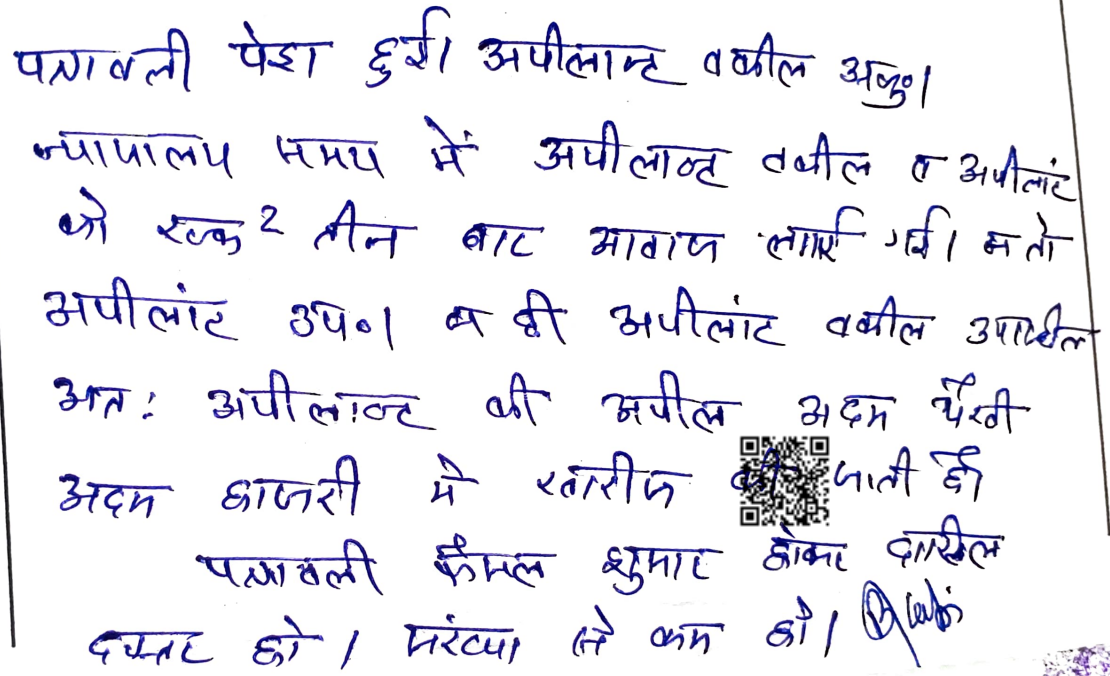 पत्रावली पेश हुई। अपीलान्ट वकील अनु०।
न्यायालय समय में अपीलान्ट वकील व अपीलांट
को एक २ तीन बार आवाज लगाई गई। न तो
अपीलांट उप०। न ही अपीलांट वकील उपस्थित
अतः अपीलान्ट की अपील अदम पैरवी
अदम हाजरी में खारीज की जाती है।
पत्रावली फैसल शुमार होकर दाखिल
दफ्तर हो। संख्या से कम हो।